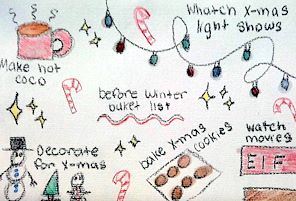 Whatch X-mas
light shows
Make hot
coco
before winter
buket list
Decorate
for X-mas
bake x-mas
cookies
watch
movies
ElF